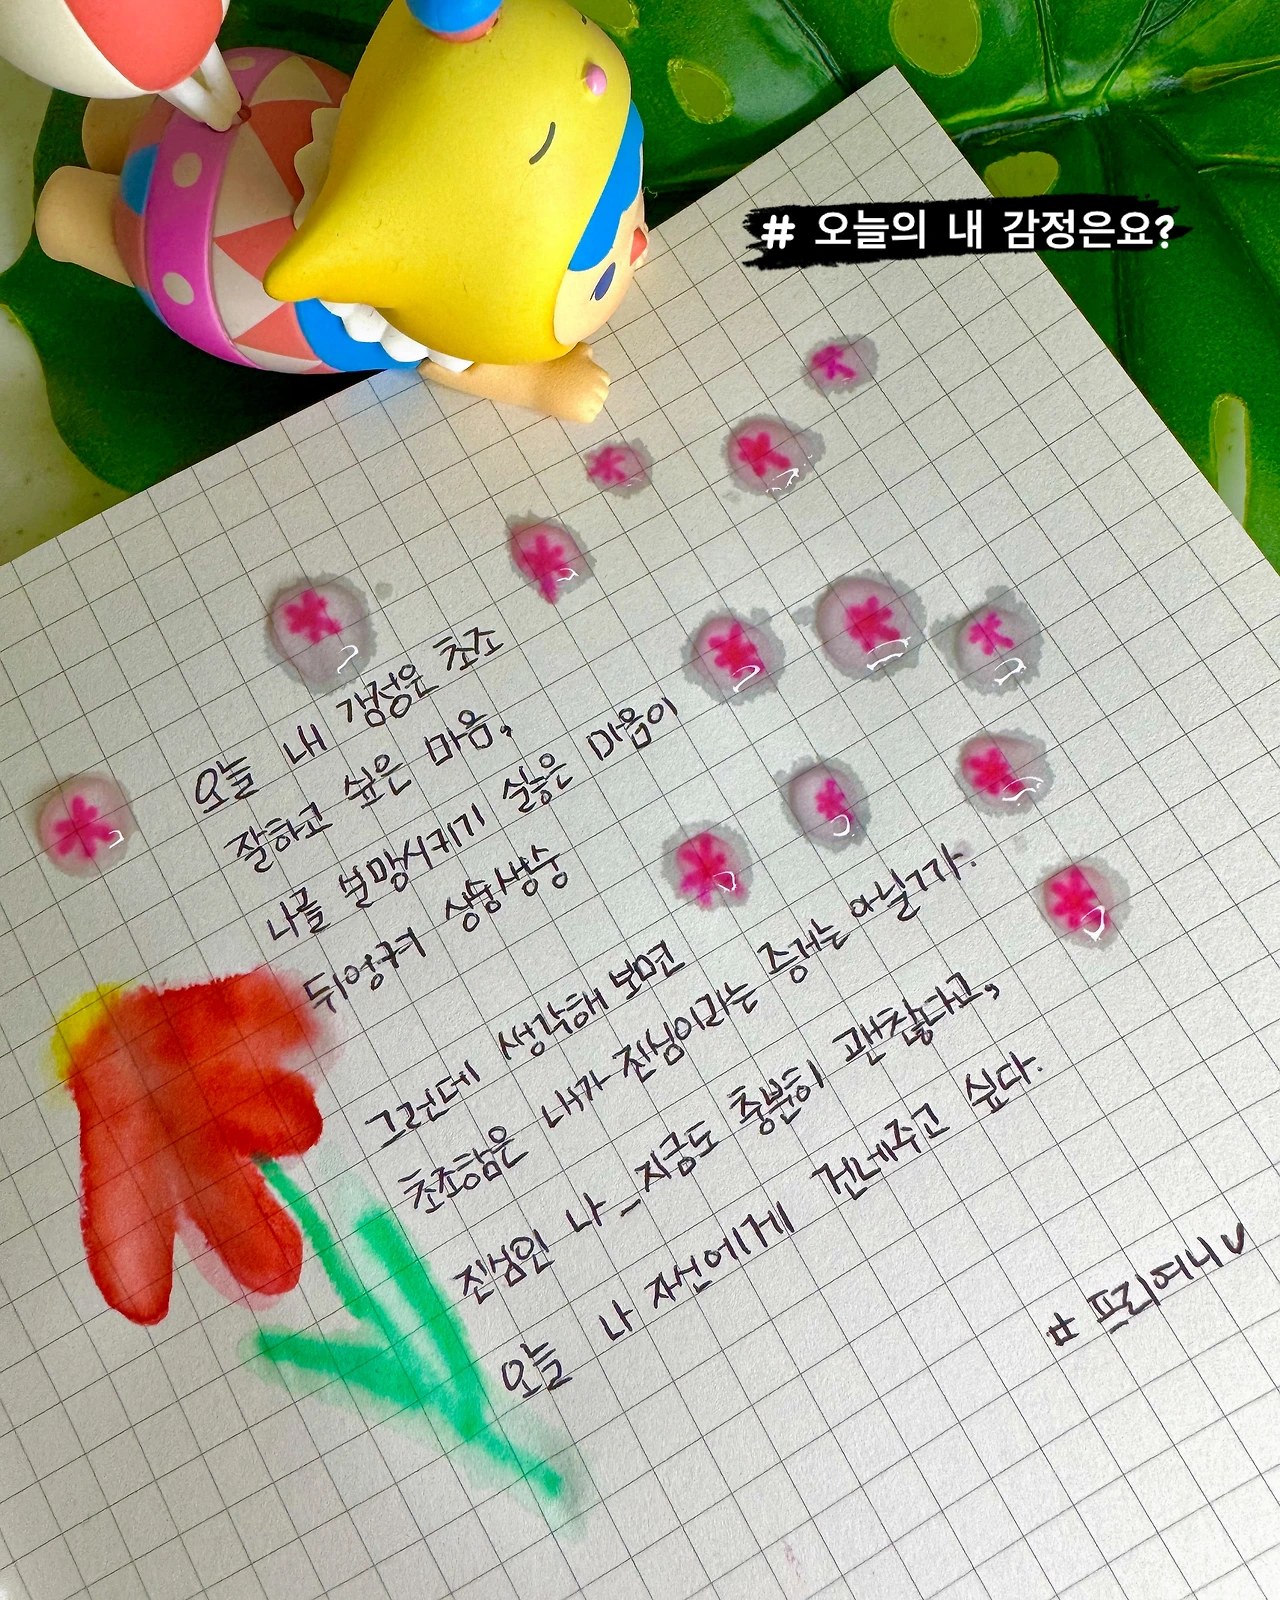 # 오늘의 내 감정은요?
오늘 내 감정은 초조
잘하고 싶은 마음,
나를 실망시키기 싫은 마음이
뒤엉켜 싱숭생숭
그런데 생각해 보면
초조함은 내가 진심이라는 증거는 아닐까.
진심인 나_지금도 충분히 괜찮다고,
오늘 나 자신에게 건네주고 싶다.
프리여니